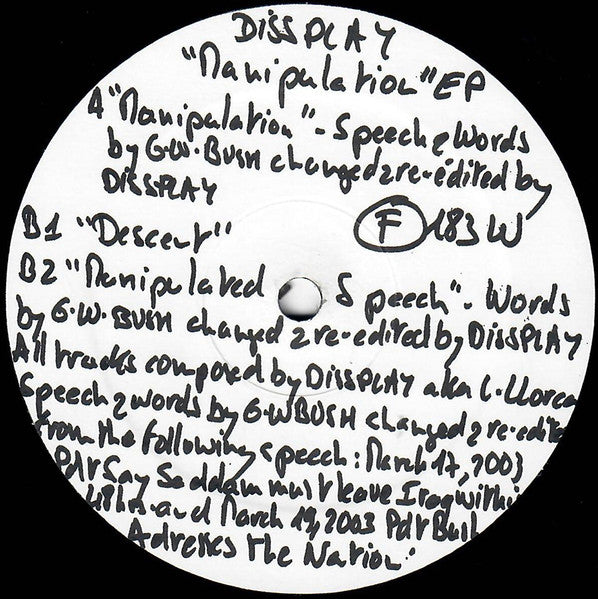 DISSPLAY
"Manipulation" EP
A "Manipulation" - Speech & Words
by G.W. BUSH changed & re-edited by
DISSPLAY
F 183 W
B1 "Descent"
B2 "Manipulated Speech" - Words
by G.W. BUSH changed & re-edited by DISSPLAY
All tracks composed by DISSPLAY aka L. LLorca
Speech & words by G.W BUSH changed & re-edited
from the following speech: March 17, 2003
PdT Say Saddam must leave Iraq within
48h. and March 19, 2003 PdT Bush
Adresses the Nation.